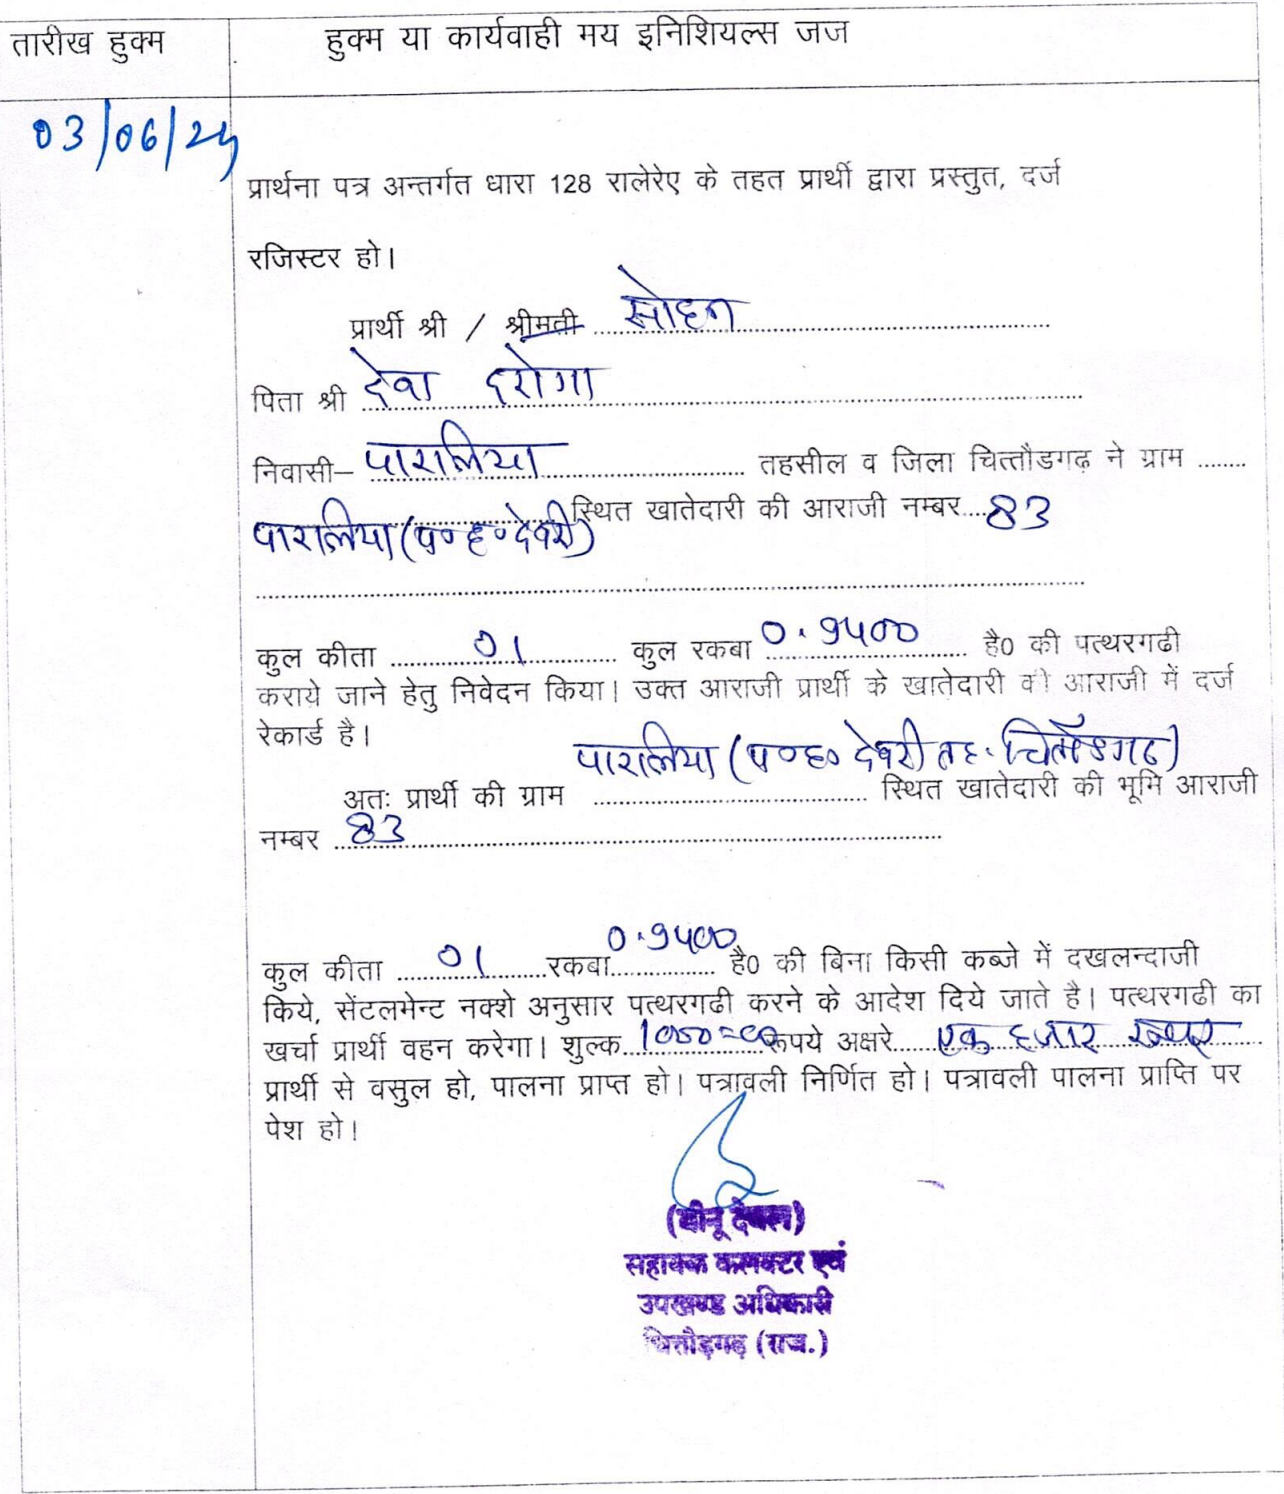 तारीख हुक्म
हुक्म या कार्यवाही मय इनिशियल्स जज
03/06/24
प्रार्थना पत्र अन्तर्गत धारा 128 रालेरेए के तहत प्रार्थी द्वारा प्रस्तुत, दर्ज
रजिस्टर हो।
प्रार्थी श्री / श्रीमती सोहन
पिता श्री देवा दरोगा
निवासी– पारालिया तहसील व जिला चित्तौडगढ़ ने ग्राम ........
पारालिया (प०ह०देवरी) स्थित खातेदारी की आराजी नम्बर....83
कुल कीता 01 कुल रकबा 0.9400 है0 की पत्थरगढी
कराये जाने हेतु निवेदन किया। उक्त आराजी प्रार्थी के खातेदारी की आराजी में दर्ज
रेकार्ड है।
पारालिया (प०ह० देवरी तह. चित्तौडगढ)
अतः प्रार्थी की ग्राम .............................. स्थित खातेदारी की भूमि आराजी
नम्बर 83
कुल कीता 01 रकबा 0.9400 है0 की बिना किसी कब्जे में दखलन्दाजी
किये, सेंटलमेन्ट नक्शे अनुसार पत्थरगढी करने के आदेश दिये जाते है। पत्थरगढी का
खर्चा प्रार्थी वहन करेगा। शुल्क 1000=00 रूपये अक्षरे एक हजार रूपए
प्रार्थी से वसुल हो, पालना प्राप्त हो। पत्रावली निर्णित हो। पत्रावली पालना प्राप्ति पर
पेश हो।
(बीनू देवल)
सहायक कलक्टर एवं
उपखण्ड अधिकारी
चित्तौड़गढ़ (राज.)